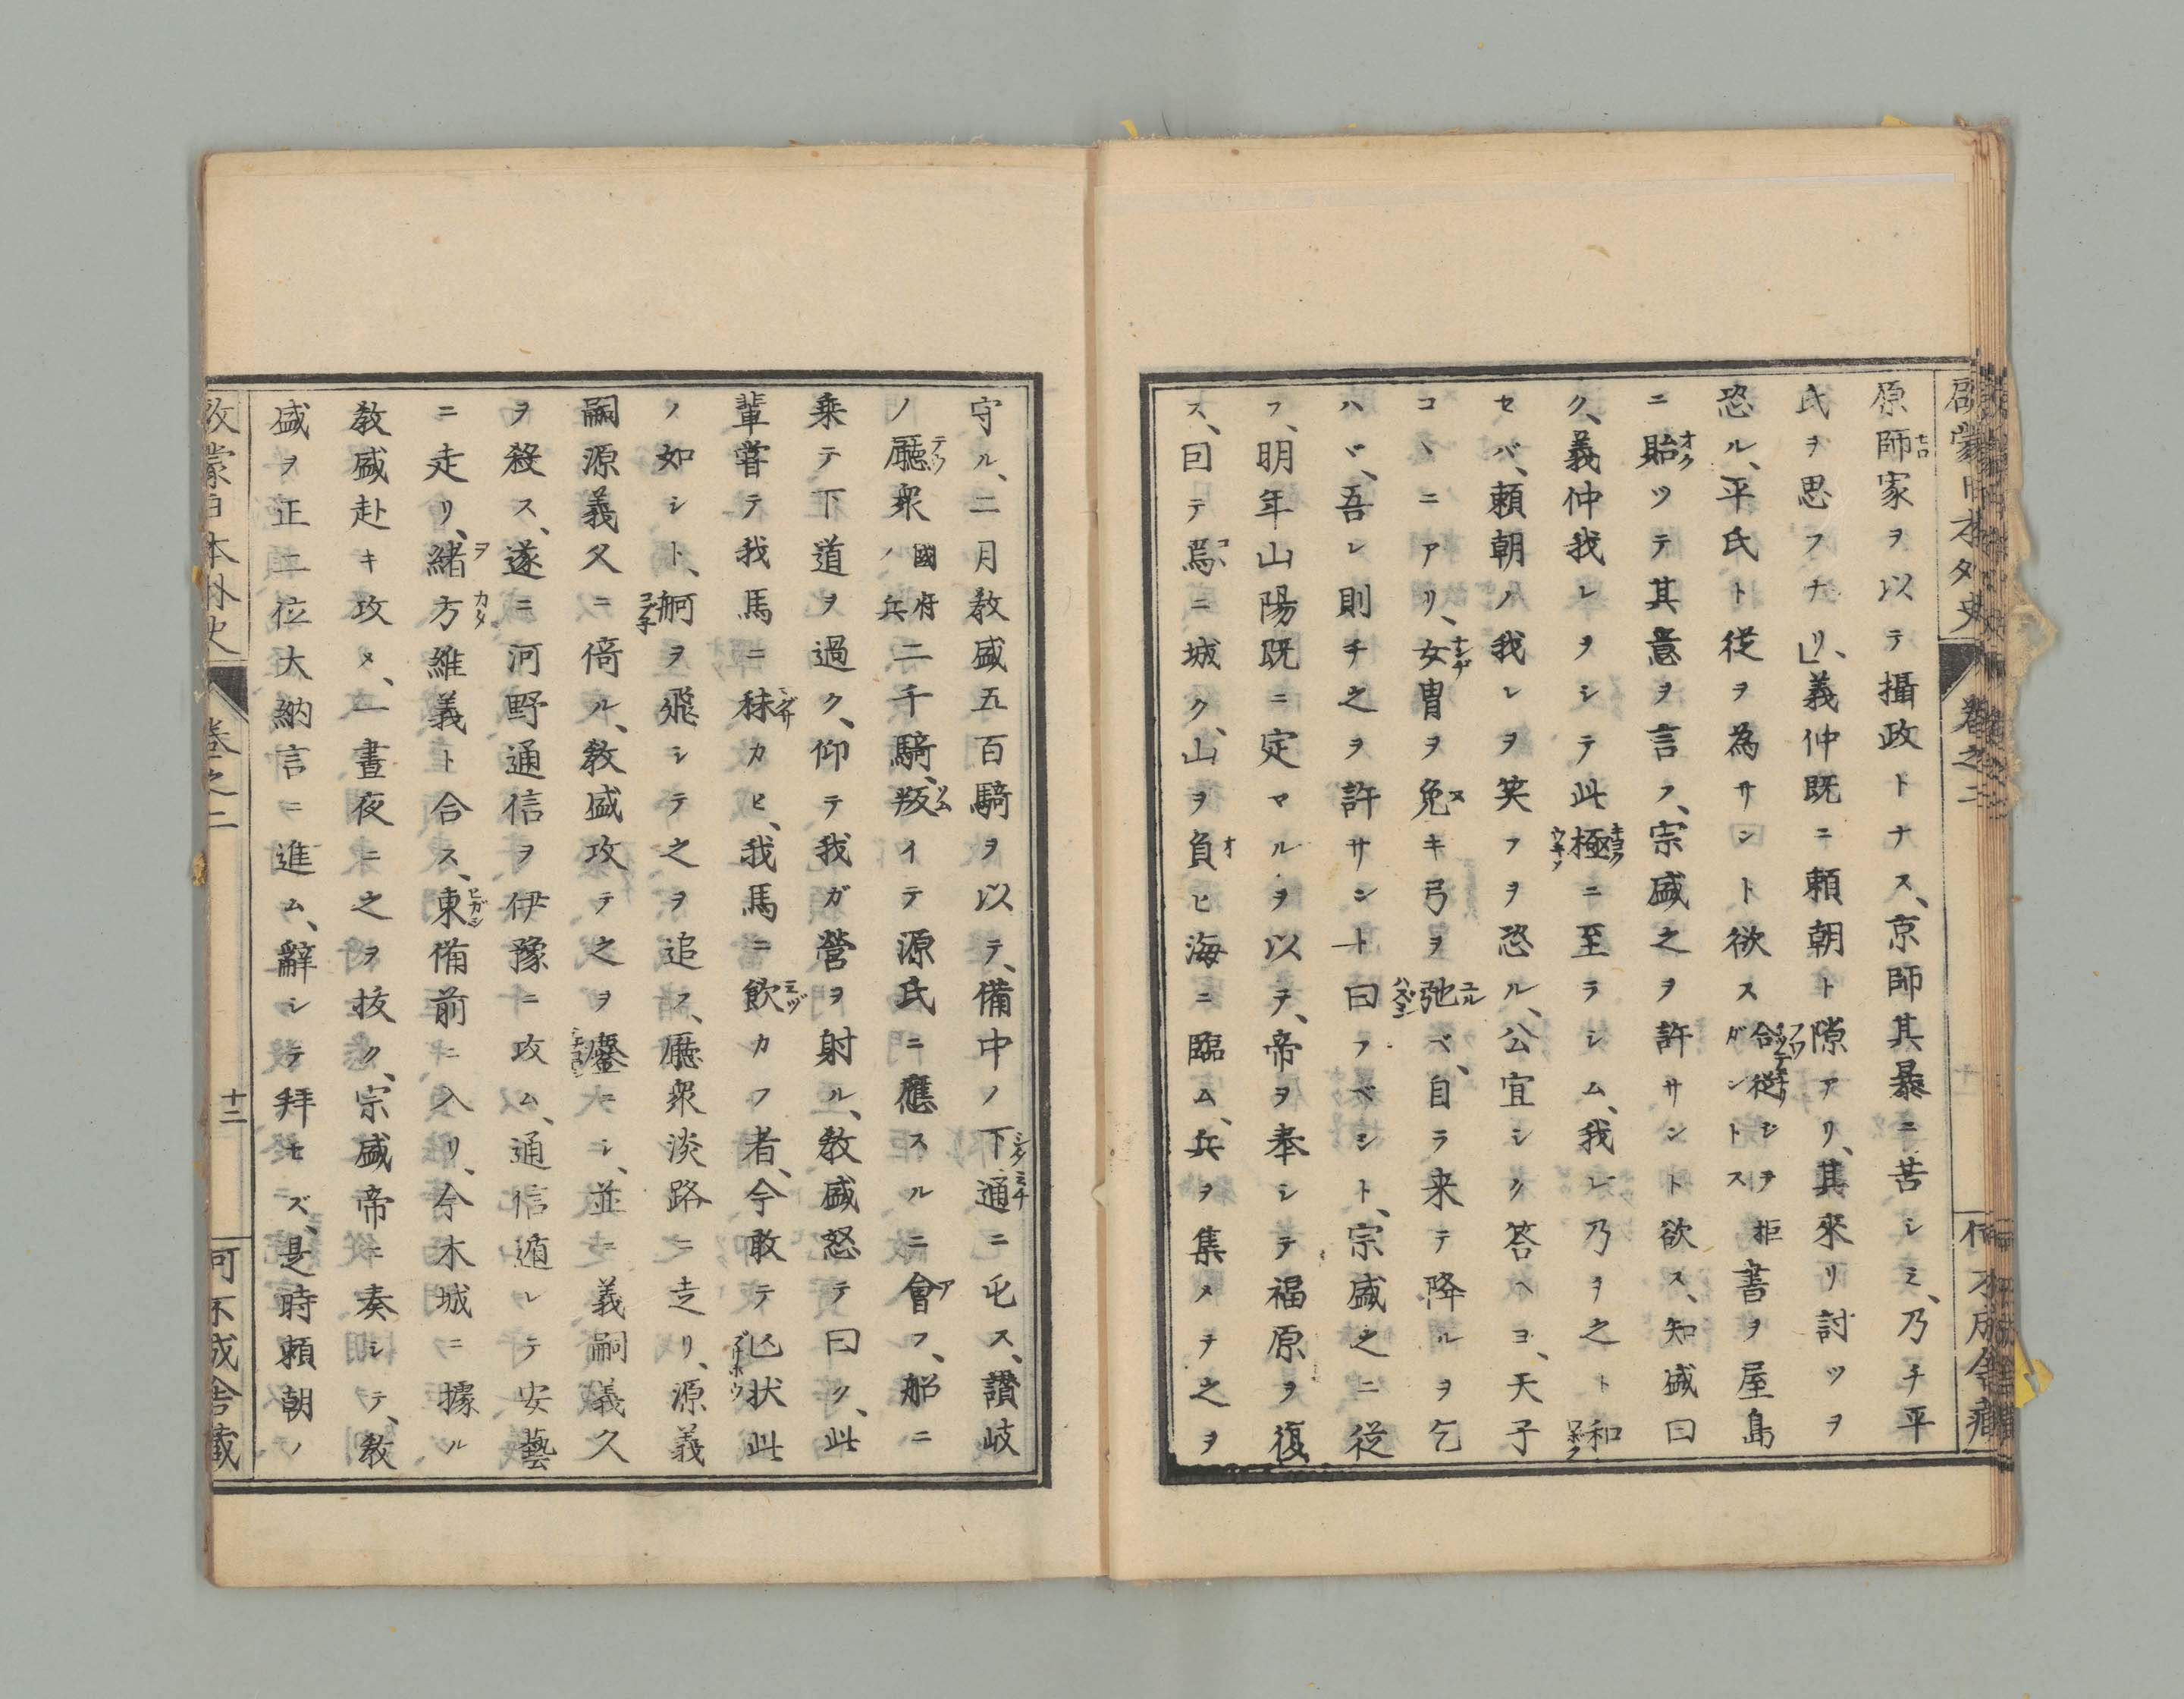 原師家ヲ以テ攝政トナス、京師其暴ニ苦シミ、乃チ平
氏ヲ思フナリ」、義仲既ニ頼朝ト隙アリ、其來リ討ツヲ
恐ル、平氏ト從ヲ為サント欲ス合從シテ拒ガントス書ヲ屋島
ニ貽ツテ其意ヲ言フ、宗盛之ヲ許サント欲ス、知盛曰
ク、義仲我レヲシテ此極ニ至ラシム、我レ乃ヲ之ト和
セバ、頼朝ノ我レヲ笑フヲ恐ル、公宜シク答ヘヨ、天子
コヽニアリ、女冑ヲ免キ弓ヲ弛ベ、自ラ来テ降ルヲ乞
ハヾ、吾レ則チ之ヲ許サント曰フベシト、宗盛之ニ從
フ、明年山陽既ニ定マルヲ以テ、帝ヲ奉シテ福原ヲ復
ス、因テ焉ニ城ク、山ヲ負ヒ海ニ臨ム、兵ヲ集メテ之ヲ
守ル、二月教盛五百騎ヲ以テ、備中ノ下道ニ屯ス、讃岐
ノ廳衆國府ノ兵二千騎、叛イテ源氏ニ應スルニ會フ、船ニ
乗テ下道ヲ過ク、仰テ我ガ營ヲ射ル、教盛怒テ曰ク、此
輩嘗テ我馬ニ秣カヒ、我馬ニ飲カフ者、今敢テ亡状此
ノ如シト、舸ヲ飛シテ之ヲ追フ、廳衆淡路ニ走リ、源義
嗣源義久ニ倚ル、教盛攻テ之ヲ鏖ニシ、並ニ義嗣義久
ヲ殺ス、遂ニ河野通信ヲ伊豫ニ攻ム、通信遁レテ安藝
ニ走リ、緒方維義ト合ス、東備前ニ入リ、今木城ニ據ル
教盛赴キ攻メ、一晝夜ニ之ヲ抜ク、宗盛帝ニ奏シテ、教
盛ヲ正二位大納言ニ進ム、辭シテ拜セズ、是時頼朝ノ
啟蒙日本外史 卷之二 十二 何不成舎藏